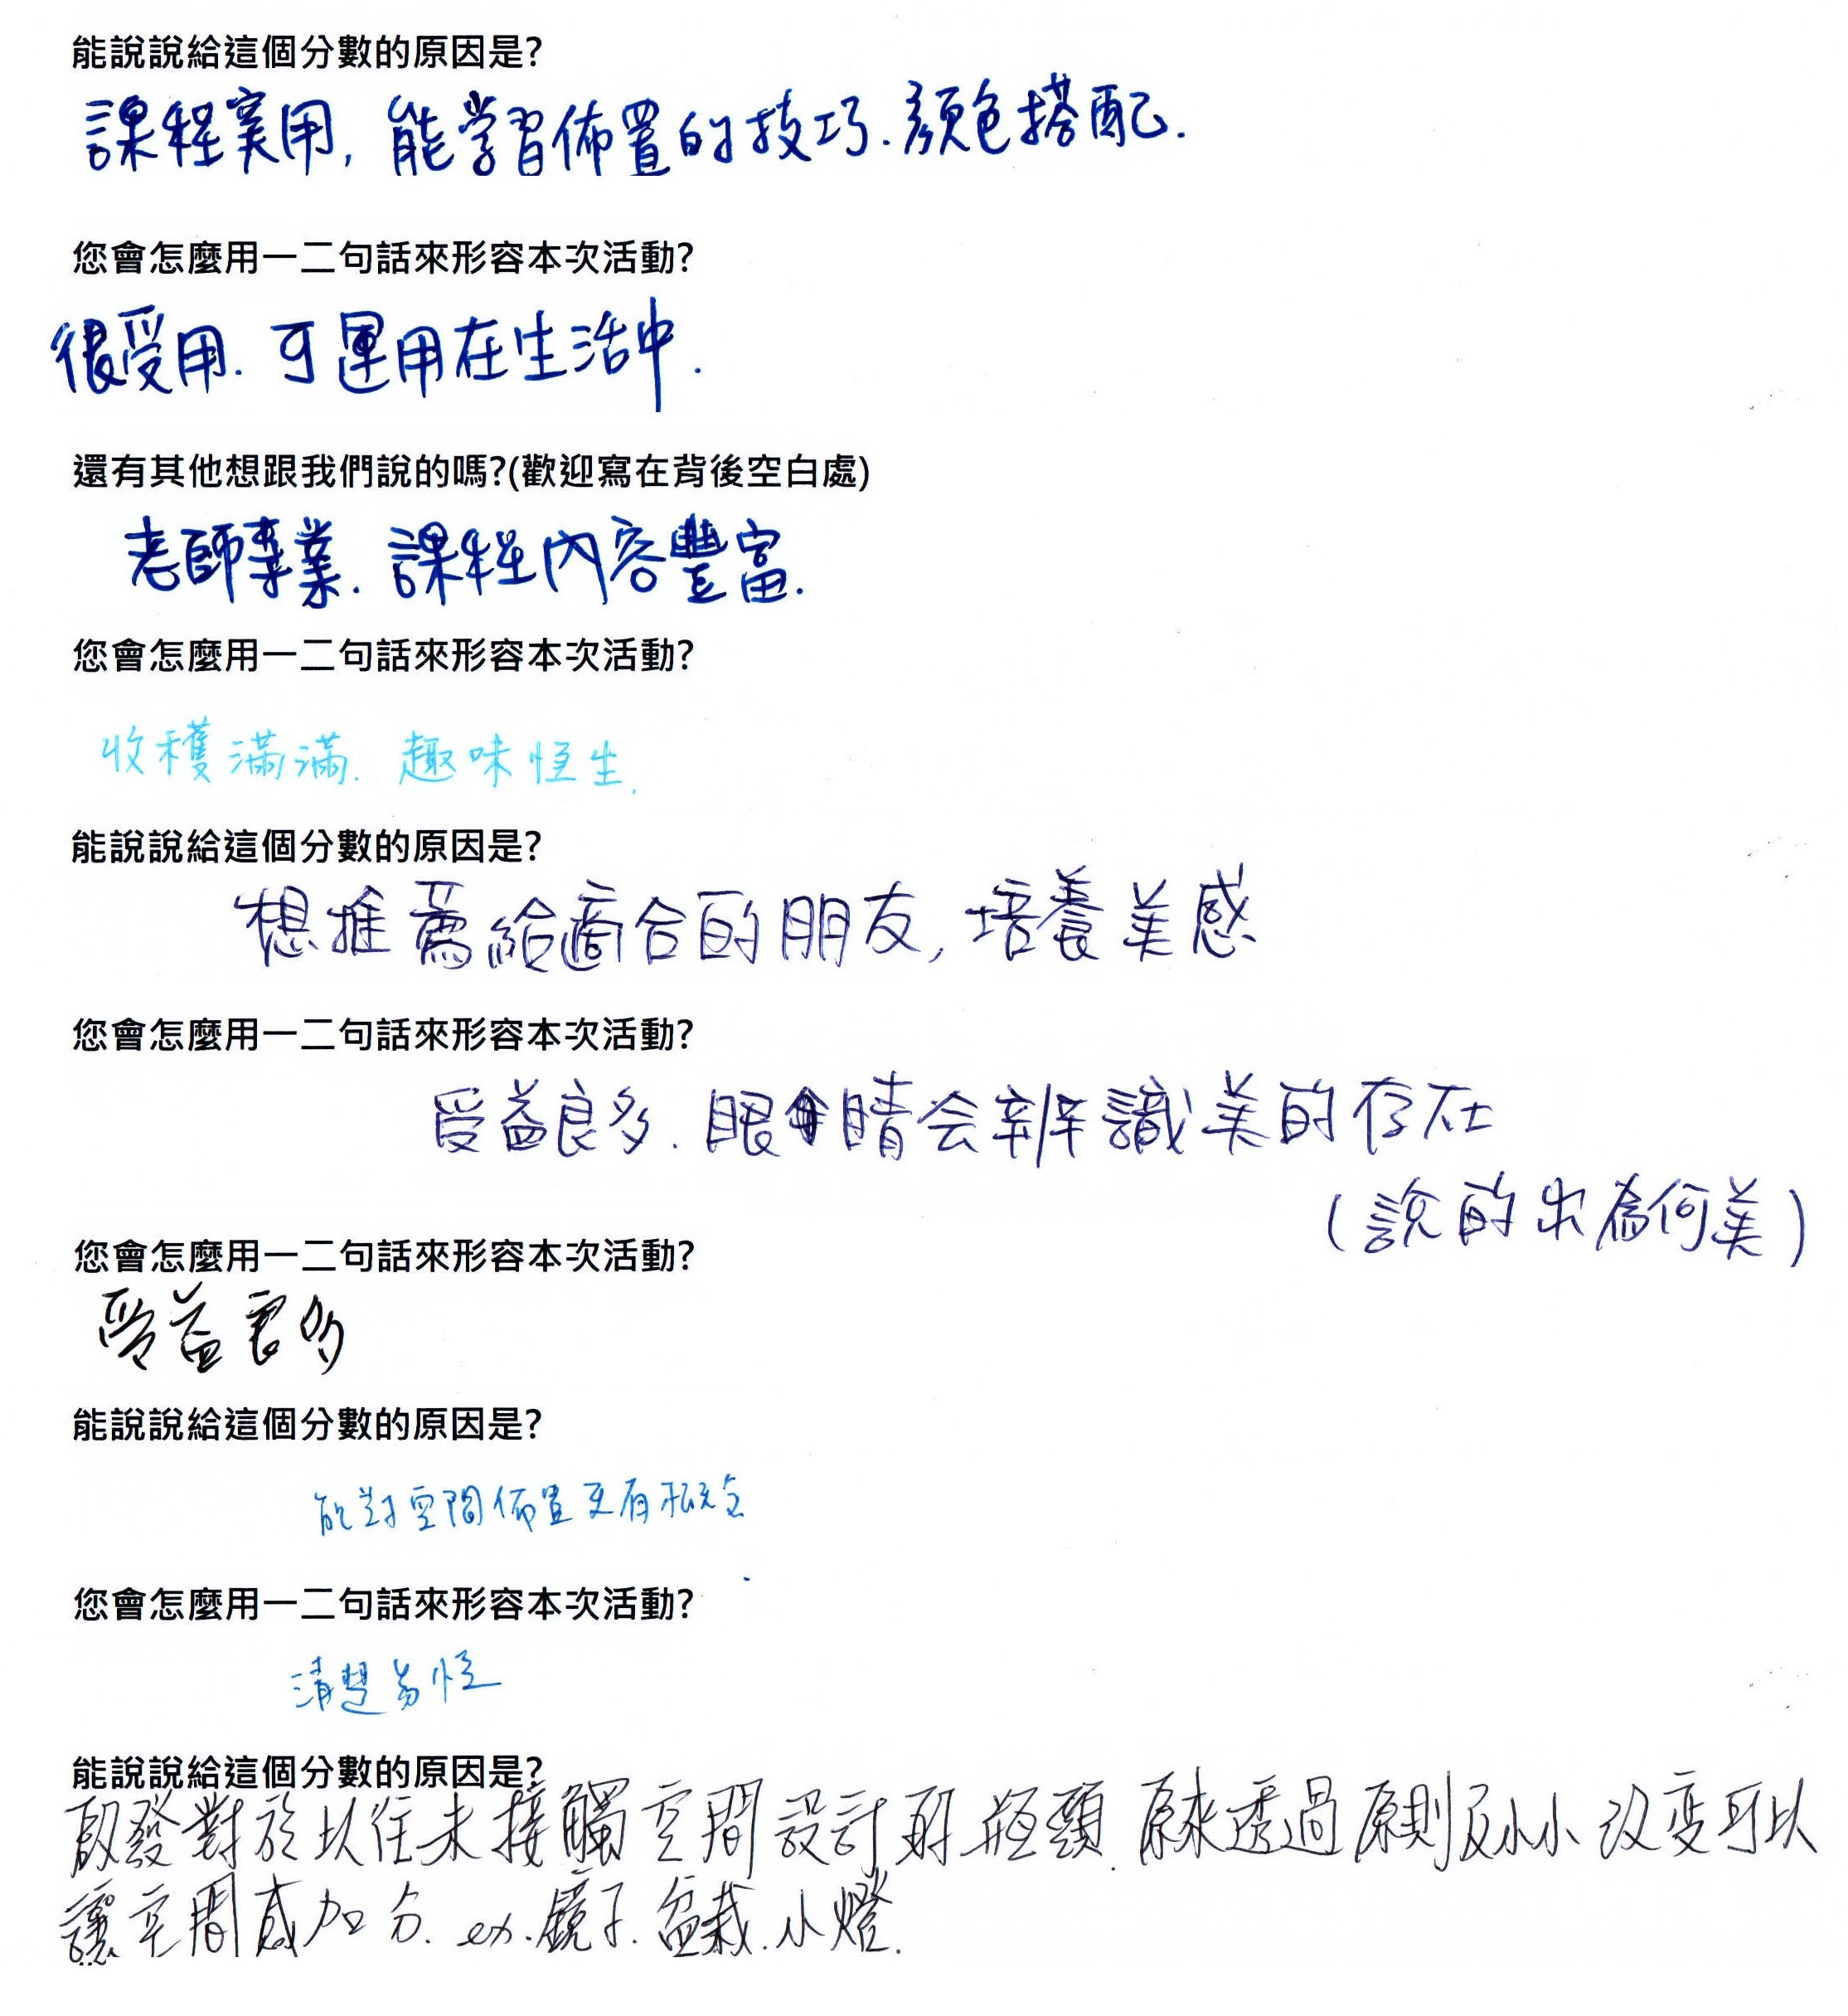 能說說給這個分數的原因是?
課程實用, 能学習佈置的技巧.顏色搭配.
您會怎麼用一二句話來形容本次活動?
很受用. 可運用在生活中.
還有其他想跟我們說的嗎?(歡迎寫在背後空白處)
老師專業. 課程內容豐富.
您會怎麼用一二句話來形容本次活動?
收穫滿滿. 趣味恆生.
能說說給這個分數的原因是?
想推薦給適合的朋友, 培養美感
您會怎麼用一二句話來形容本次活動?
受益良多. 眼睛会辨識美的存在
(說的出為何美)
您會怎麼用一二句話來形容本次活動?
受益良多
能說說給這個分數的原因是?
能對空間佈置更有概念
您會怎麼用一二句話來形容本次活動?
清楚易懂
能說說給這個分數的原因是?
啟發對於以往未接觸空間設計的瓶頸. 原來透過原則及小小改变可以
讓空間感加分. ex. 鏡子. 盆栽. 小燈.